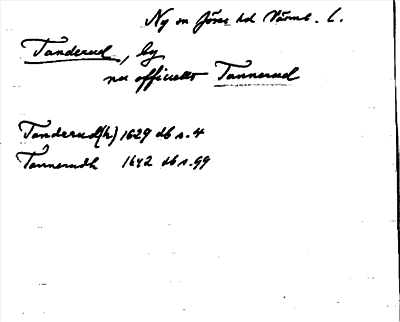 Ny sn Jösse hd Värml. l.
Tanderud, by
nu officiellt Tannerud
Tanderud(h) 1629 db s. 4
Tannerudh 1642 db s. 99